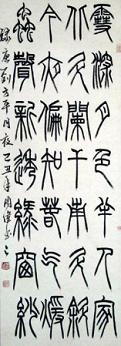 更深月色半人家
北斗闌干南斗斜
今夜偏知春氣暖
蟲聲新透綠窗紗
録唐劉方平月夜己丑年